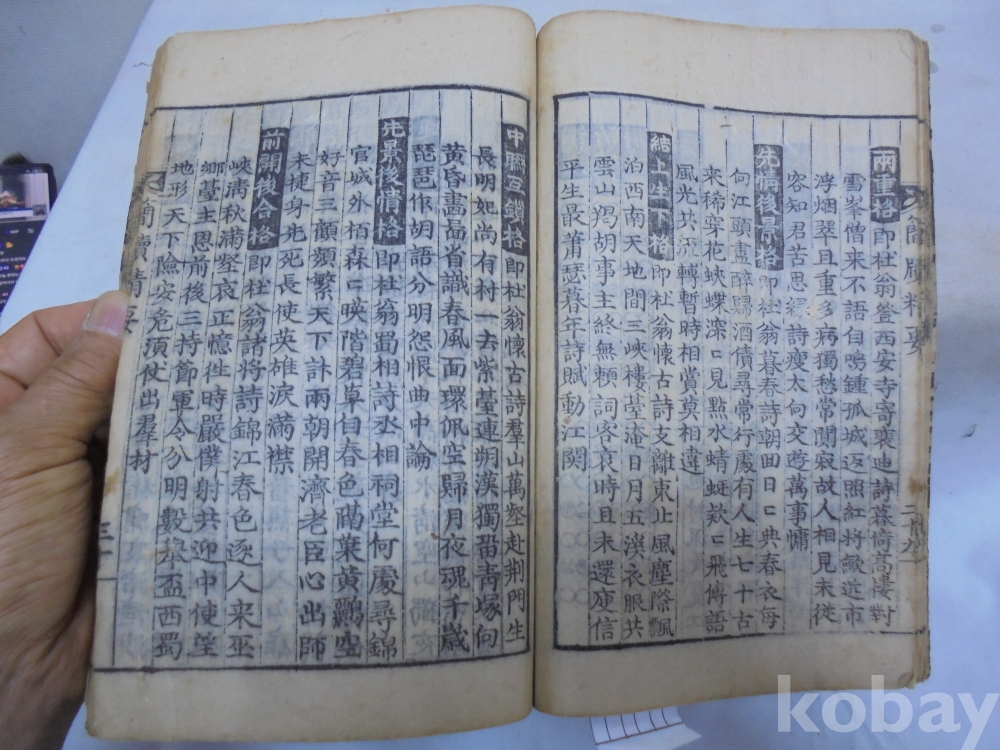 兩重格即杜翁登西安寺寄裴迪詩暮倚高樓對
雪峯僧来不語自鳴鍾孤城返照紅将歛近市
浮烟翠且重多病獨愁常闃寂故人相見未從
容知君苦思緣詩瘦太向交遊萬事慵
先情後景格即杜翁暮春詩朝回日〻典春衣每
向江頭盡醉歸酒債尋常行處有人生七十古
来稀穿花蛺蝶深〻見點水蜻蜓欵〻飛傳語
風光共流轉暫時相賞莫相違
結上生下格即杜翁懷古詩支離東北風塵際飄
泊西南天地間三峽樓䑓淹日月五溪衣服共
雲山羯胡事主終無頼詞客哀時且未還庾信
平生最蕭瑟暮年詩賦動江関
簡牘精要
中聯互鎖格即杜翁懷古詩羣山萬壑赴荆門生
長明妃尚有村一去紫䑓連朔漠獨留青塚向
黄昏畫啚省識春風面環佩空歸月夜魂千歲
琵琶作胡語分明怨恨曲中論
先景後情格即杜翁蜀相詩丞相祠堂何處尋錦
官城外栢森〻映階碧草自春色隔葉黄鸝空
好音三顧頻繁天下計兩朝開濟老臣心出師
未捷身先死長使英雄淚滿襟
前開後合格即杜翁諸将詩錦江春色逐人来巫
峽淸秋滿壑哀正憶往時嚴僕射共迎中使望
鄉䑓主恩前後三持節軍令分明數擧盃西蜀
地形天下險安危須仗出羣材
簡牘精要 三十